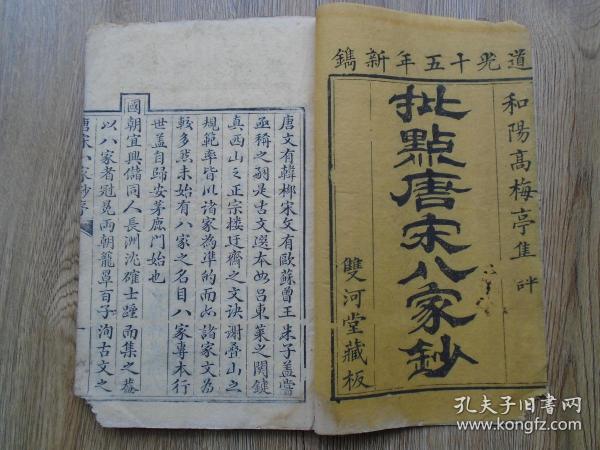 道光十五年新鐫
和陽高梅亭集評
批點唐宋八家鈔
雙河堂藏板
唐文有韓柳宋文有歐蘇曾王朱子蓋嘗
亟稱之嗣是古文選本如呂東萊之關鍵
真西山之正宗樓迂齋之文訣謝疊山之
規範率皆以諸家為準的而而諸家文為
較多焉未始有八家之名目八家專本行
世蓋自歸安茅鹿門始也
國朝宜興儲同人長洲沈確士踵而集之蓋
以八家者冠冕兩朝籠罩百子洵古文之
唐宋八家鈔序
孔夫子旧书网
www.kongfz.com